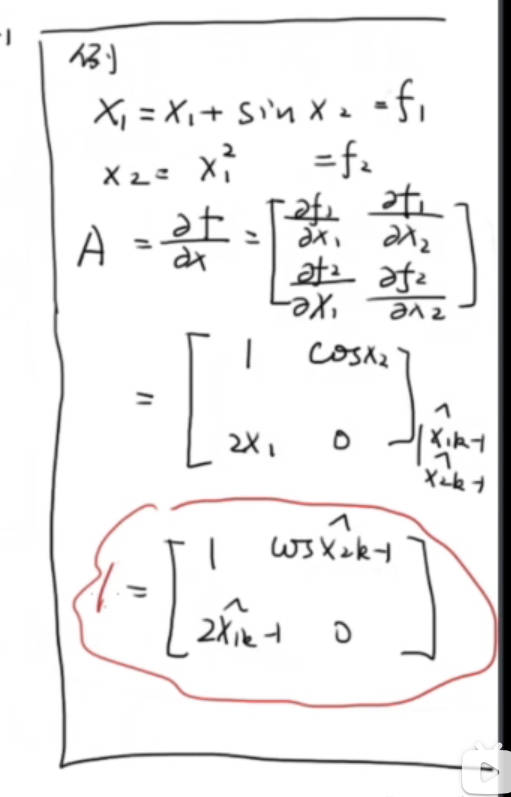 例
x₁ = x₁ + sin x₂ = f₁
x₂ = x₁² = f₂
A = ∂f/∂x = [∂f₁/∂x₁ ∂f₁/∂x₂
∂f₂/∂x₁ ∂f₂/∂x₂]
= [1 cosx₂
2x₁ 0] | x̂₁k-1
x̂₂k-1
= [1 cosx̂₂k-1
2x̂₁k-1 0]